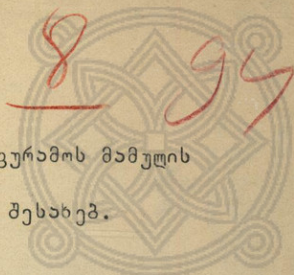 8 94
გურამოს მამულის
შესახებ.